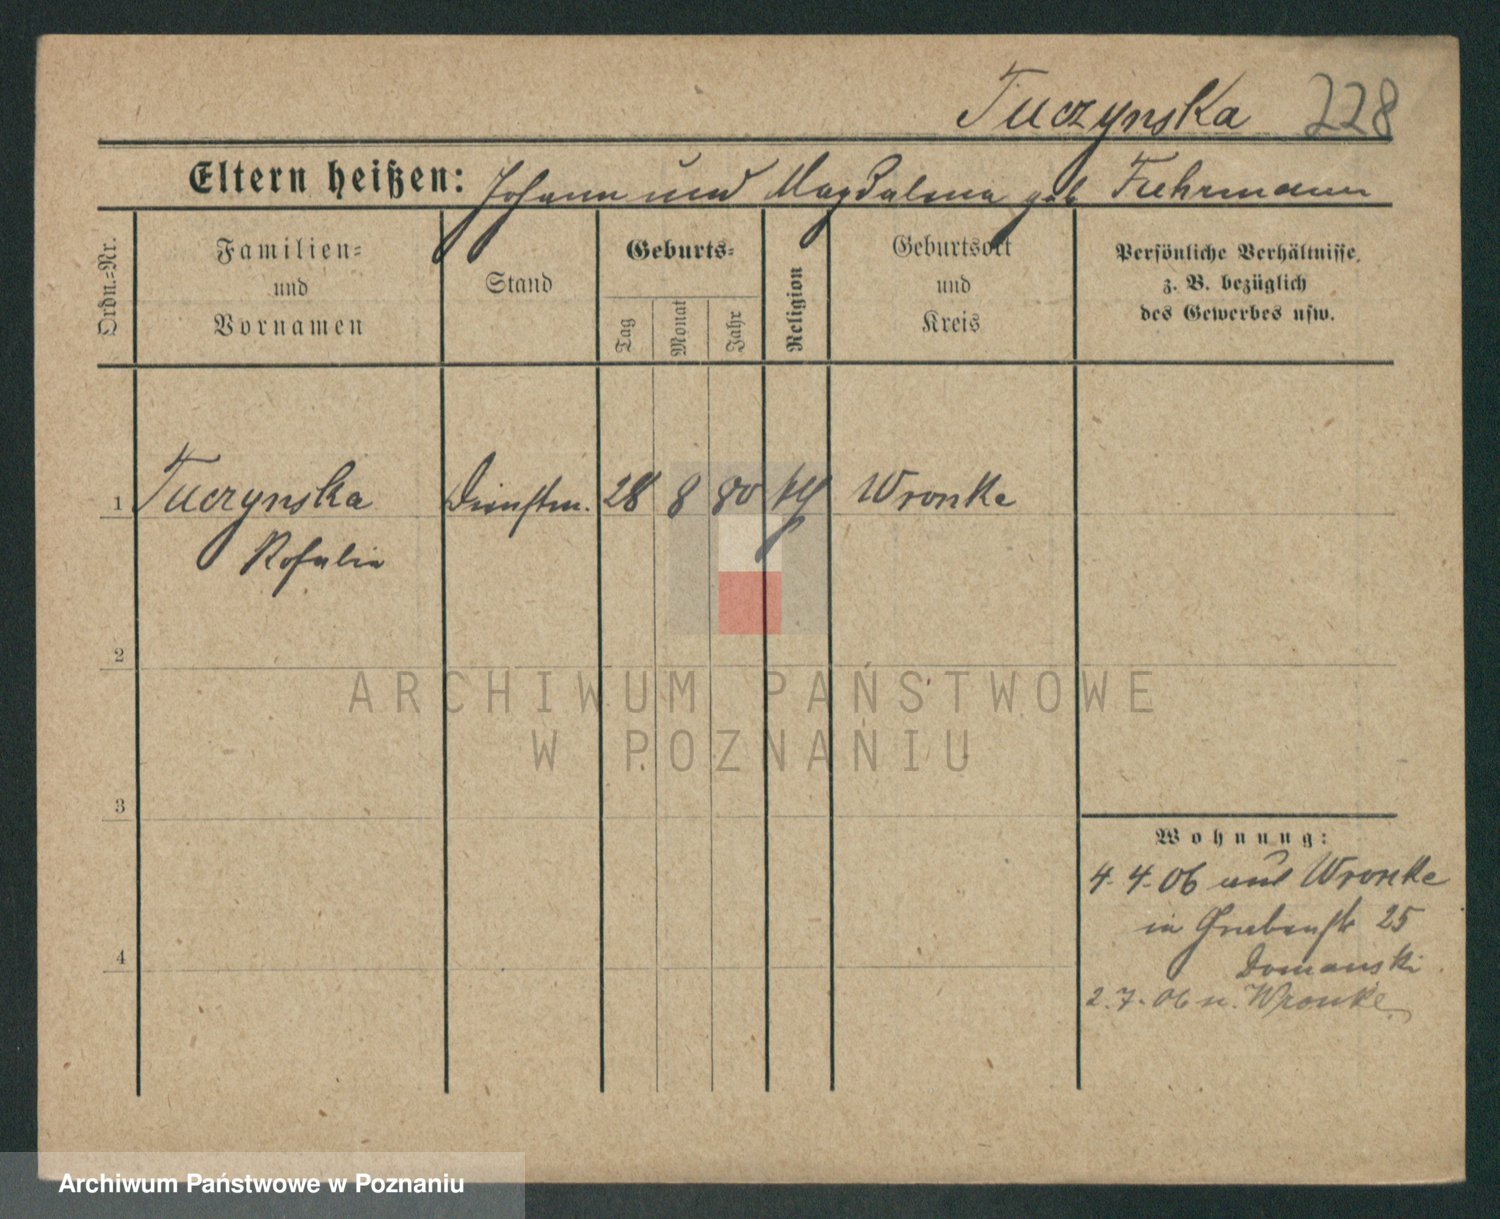 Tuczynska 228
Eltern heißen: Johann und Magdalena geb Fuhrmann
Ordn.=Nr.
Familien=
und
Vornamen
Stand
Geburts=
Tag
Monat
Jahr
Religion
Geburtsort
und
Kreis
Persönliche Verhältnisse
z. B. bezüglich
des Gewerbes usw.
1 Tuczynska Dienstm. 28 8 80 Wronke
Rosalie
2
ARCHIWUM PAŃSTWOWE
W POZNANIU
3
Wohnung:
4. 4. 06 aus Wronke
in Grabenstr 25
4
Domanski
2. 7. 06 n. Wronke
Archiwum Państwowe w Poznaniu